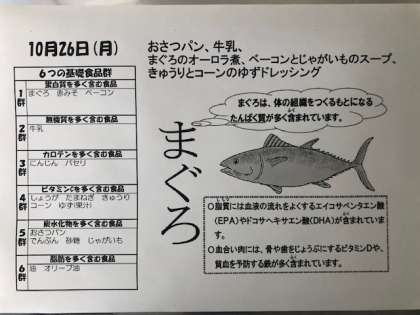 10月26日(月)
おさつパン、牛乳、
まぐろのオーロラ煮、ベーコンとじゃがいものスープ、
きゅうりとコーンのゆずドレッシング
6つの基礎食品群
蛋白質を多く含む食品
1群
まぐろ 赤みそ ベーコン
無機質を多く含む食品
2群
牛乳
カロテンを多く含む食品
3群
にんじん パセリ
ビタミンCを多く含む食品
4群
しょうが たまねぎ きゅうり
コーン ゆず(果汁)
炭水化物を多く含む食品
5群
おさつパン
でんぷん 砂糖 じゃがいも
脂肪を多く含む食品
6群
油 オリーブ油
まぐろ
まぐろは、体の組織をつくるもとになる
たんぱく質が多く含まれています。
○脂質には血液の流れをよくするエイコサペンタエン酸
(EPA)やドコサヘキサエン酸(DHA)が含まれていま
す。
○血合い肉には、骨や歯をじょうぶにするビタミンDや、
貧血を予防する鉄が多く含まれています。